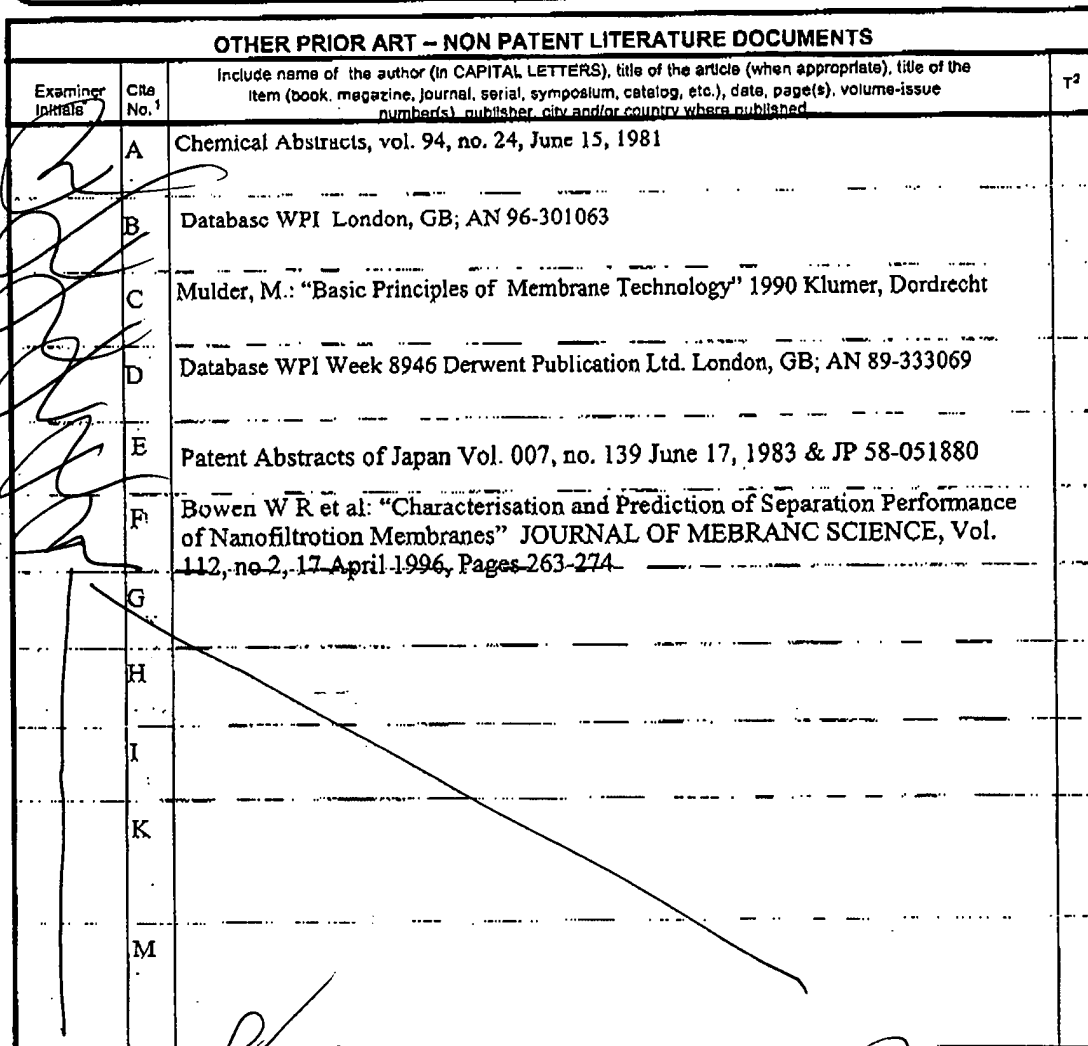 OTHER PRIOR ART – NON PATENT LITERATURE DOCUMENTS
Examiner Initials
Cite No.¹
Include name of the author (in CAPITAL LETTERS), title of the article (when appropriate), title of the
item (book, magazine, journal, serial, symposium, catalog, etc.), date, page(s), volume-issue
number(s), publisher, city and/or country where published
T²
A Chemical Abstracts, vol. 94, no. 24, June 15, 1981
B Database WPI London, GB; AN 96-301063
C Mulder, M.: “Basic Principles of Membrane Technology” 1990 Klumer, Dordrecht
D Database WPI Week 8946 Derwent Publication Ltd. London, GB; AN 89-333069
E Patent Abstracts of Japan Vol. 007, no. 139 June 17, 1983 & JP 58-051880
F Bowen W R et al: “Characterisation and Prediction of Separation Performance
of Nanofiltrotion Membranes” JOURNAL OF MEBRANC SCIENCE, Vol.
112, no 2, 17 April 1996, Pages 263-274
G
H
I
K
M